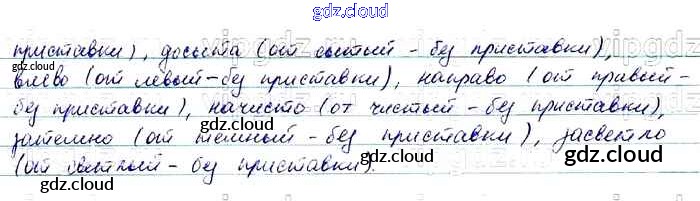 gdz.cloud
приставки), досыта (от сытый - без приставки),
влево (от левый - без приставки), направо (от правый -
без приставки), начисто (от чистый - без приставки),
затемно (от темный - без приставки), засветло
(от светлый - без приставки).
gdz.cloud
gdz.cloud
gdz.cloud
gdz.cloud
gdz.cloud
gdz.cloud